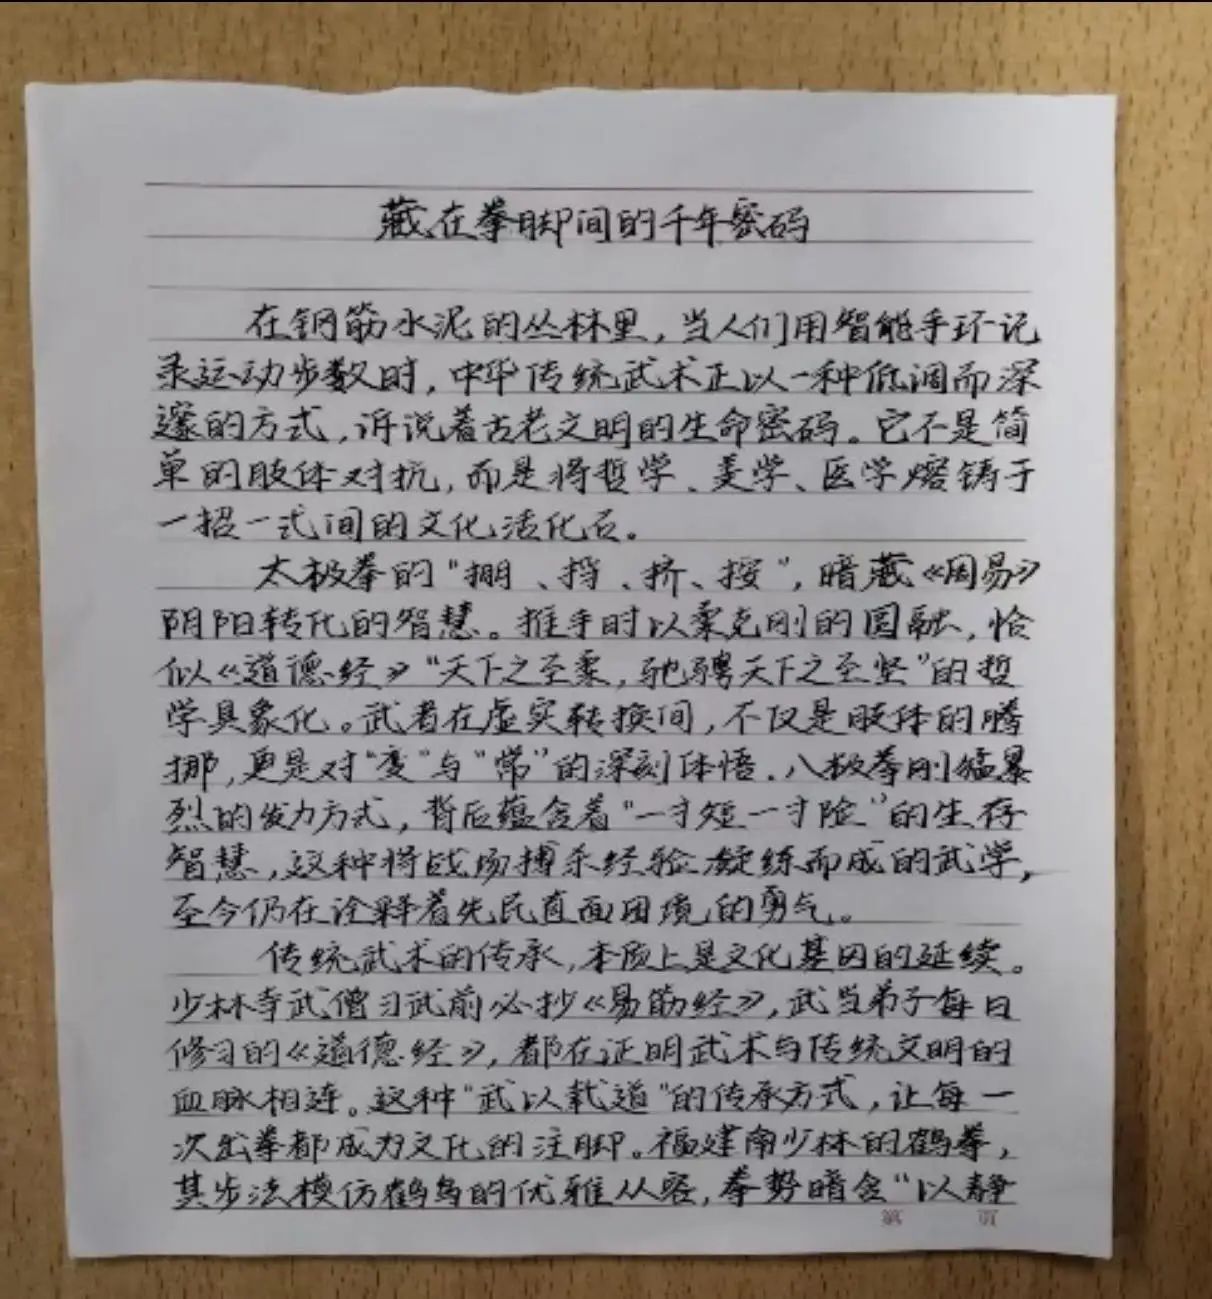 藏在拳脚间的千年密码
在钢筋水泥的丛林里，当人们用智能手环记
录运动步数时，中华传统武术正以一种低调而深
邃的方式，诉说着古老文明的生命密码。它不是简
单的肢体对抗，而是将哲学、美学、医学熔铸于
一招一式间的文化活化石。
太极拳的“掤、捋、挤、按”，暗藏《周易》
阴阳转化的智慧。推手时以柔克刚的圆融，恰
似《道德经》“天下之至柔，驰骋天下之至坚”的哲
学具象化。武者在虚实转换间，不仅是肢体的腾
挪，更是对“变”与“常”的深刻体悟。八极拳刚猛暴
烈的发力方式，背后蕴含着“一寸短一寸险”的生存
智慧，这种将战场搏杀经验凝练而成的武学，
至今仍在诠释着先民直面困境的勇气。
传统武术的传承，本质上是文化基因的延续。
少林寺武僧习武前必抄《易筋经》，武当弟子每日
修习的《道德经》，都在证明武术与传统文明的
血脉相连。这种“武以载道”的传承方式，让每一
次出拳都成为文化的注脚。福建南少林的鹤拳，
其步法模仿鹤鸟的优雅从容，拳势暗含“以静
第 页